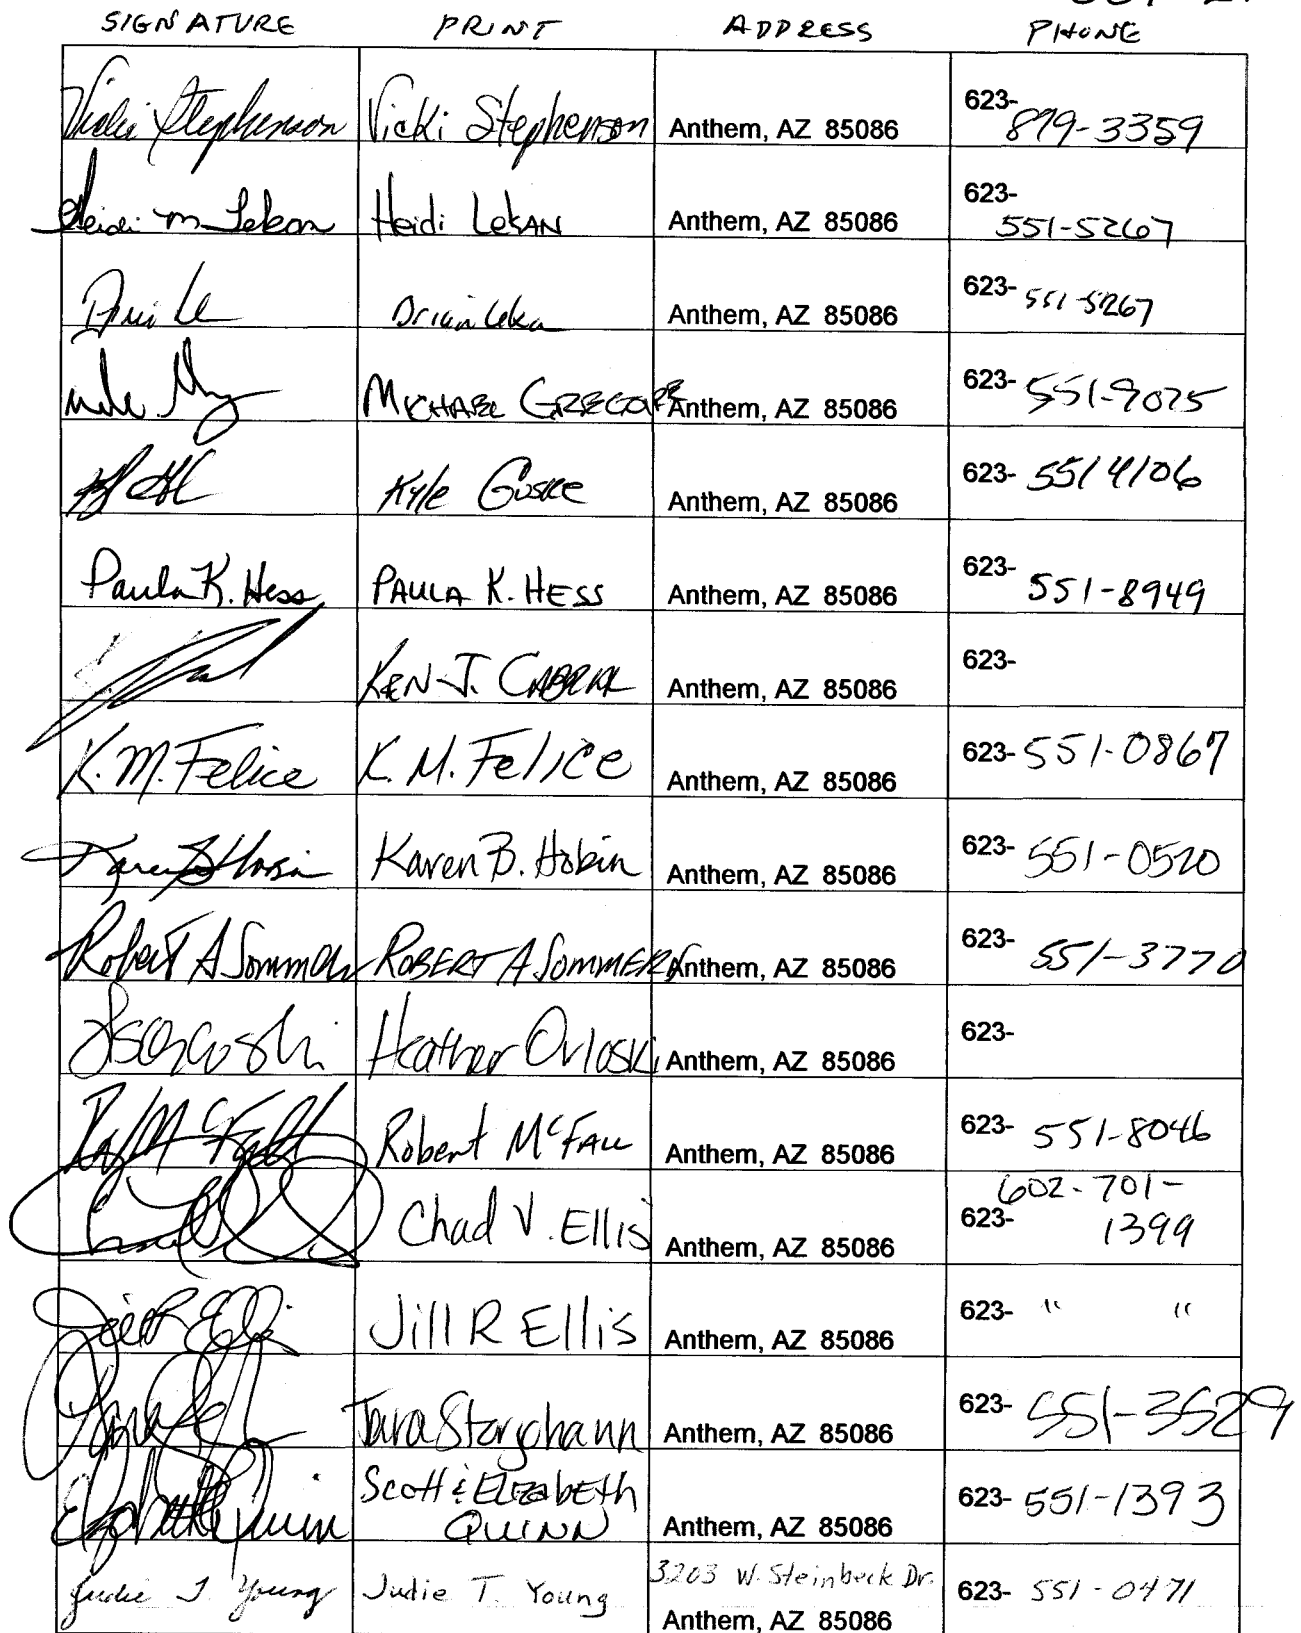 SIGNATURE PRINT ADDRESS PHONE
Vicki Stephenson Vicki Stephenson Anthem, AZ 85086 623-879-3359
Heidi M Lekan Heidi LekAN Anthem, AZ 85086 623-551-5267
Anthem, AZ 85086 623-551-5267
MICHAEL Anthem, AZ 85086 623-551-9025
Kyle Guske Anthem, AZ 85086 623-5514106
Paula K. Hess PAULA K. HESS Anthem, AZ 85086 623-551-8949
KEN J. CABRAL Anthem, AZ 85086 623-
K. M. Felice K. M. Felice Anthem, AZ 85086 623-551-0867
Karen B. Hobin Anthem, AZ 85086 623-551-0520
Robert A Sommers ROBERT A SOMMERS Anthem, AZ 85086 623-551-3770
Heather Orloski Anthem, AZ 85086 623-
Robert McFALL Anthem, AZ 85086 623-551-8046
602-701-
Chad V. Ellis Anthem, AZ 85086 623-1399
Jill R Ellis Jill R Ellis Anthem, AZ 85086 623- " "
Tara Anthem, AZ 85086 623-551-3529
Scott & ELIZAbETH
Elizabeth Quinn QUINN Anthem, AZ 85086 623-551-1393
3203 W. Steinbeck Dr.
Judie T. Young Judie T. Young Anthem, AZ 85086 623-551-0471